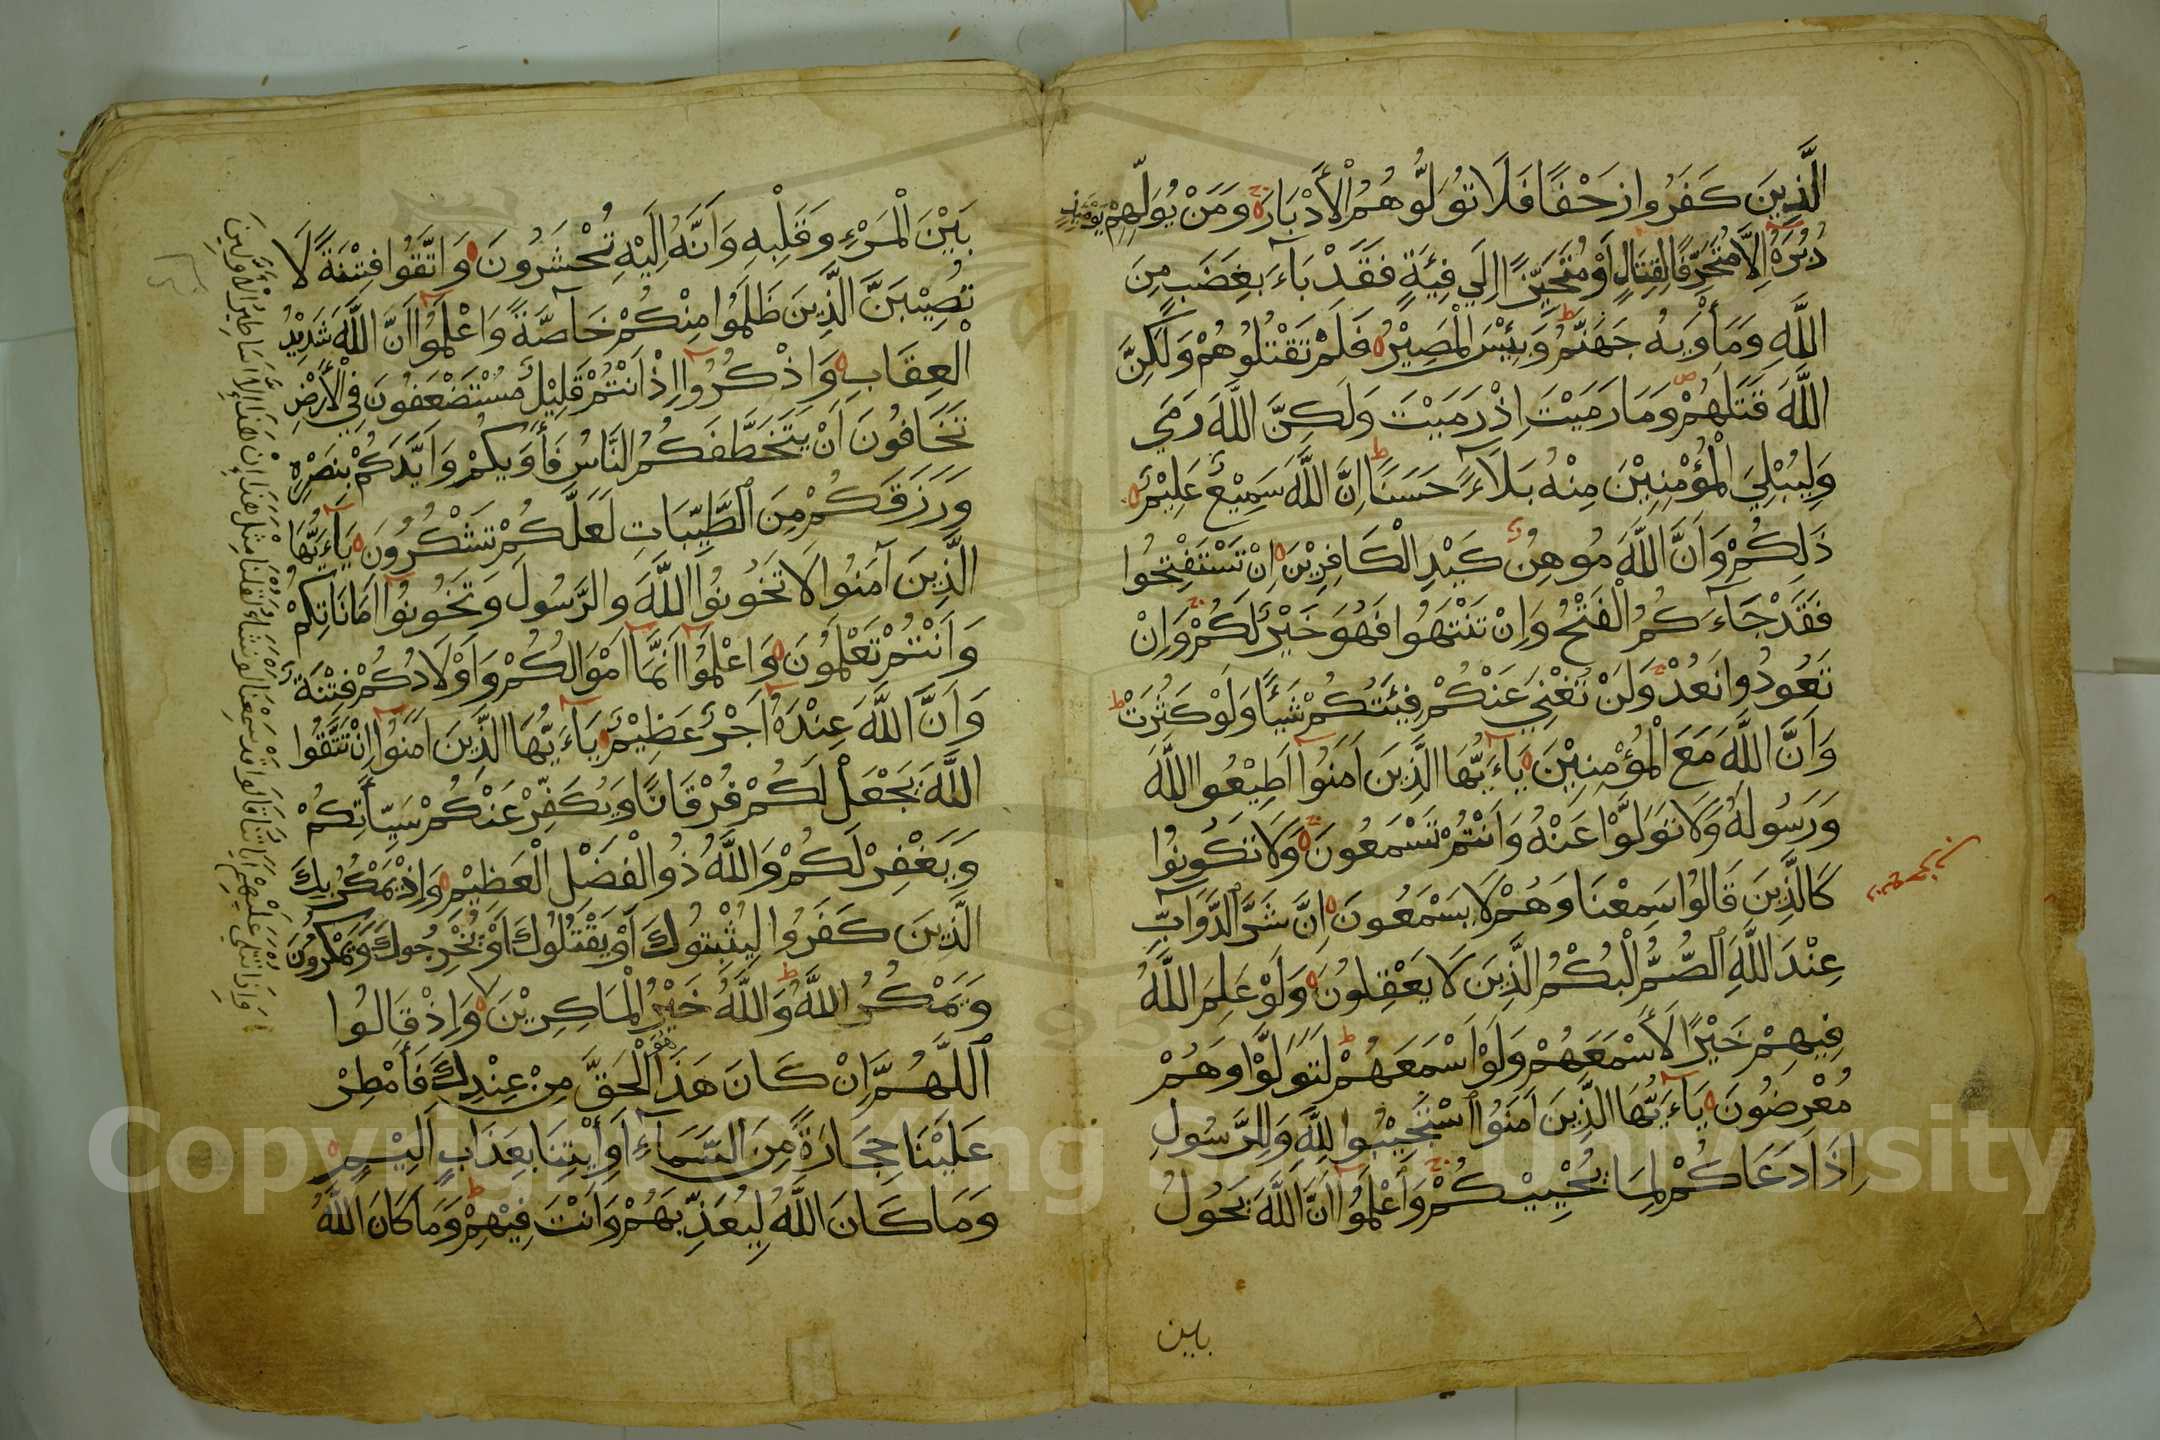 الَّذِينَ كَفَرُوا زَحْفًا فَلَا تُوَلُّوهُمُ الْأَدْبَارَ وَمَنْ يُوَلِّهِمْ يَوْمَئِذٍ
دُبُرَهُ إِلَّا مُتَحَرِّفًا لِقِتَالٍ أَوْ مُتَحَيِّزًا إِلَى فِئَةٍ فَقَدْ بَاءَ بِغَضَبٍ مِنَ
اللَّهِ وَمَأْوَيهُ جَهَنَّمُ وَبِئْسَ الْمَصِيرُ فَلَمْ تَقْتُلُوهُمْ وَلَكِنَّ
اللَّهَ قَتَلَهُمْ وَمَا رَمَيْتَ إِذْ رَمَيْتَ وَلَكِنَّ اللَّهَ رَمَى
وَلِيُبْلِيَ الْمُؤْمِنِينَ مِنْهُ بَلَاءً حَسَنًا إِنَّ اللَّهَ سَمِيعٌ عَلِيمٌ
ذَلِكُمْ وَأَنَّ اللَّهَ مُوهِنُ كَيْدِ الْكَافِرِينَ إِنْ تَسْتَفْتِحُوا
فَقَدْ جَاءَكُمُ الْفَتْحُ وَإِنْ تَنْتَهُوا فَهُوَ خَيْرٌ لَكُمْ وَإِنْ
تَعُودُوا نَعُدْ وَلَنْ تُغْنِيَ عَنْكُمْ فِئَتُكُمْ شَيْئًا وَلَوْ كَثُرَتْ
وَأَنَّ اللَّهَ مَعَ الْمُؤْمِنِينَ يَاءَيُّهَا الَّذِينَ آمَنُوا أَطِيعُوا اللَّهَ
وَرَسُولَهُ وَلَا تَوَلَّوْا عَنْهُ وَأَنْتُمْ تَسْمَعُونَ وَلَا تَكُونُوا
كَالَّذِينَ قَالُوا سَمِعْنَا وَهُمْ لَا يَسْمَعُونَ إِنَّ شَرَّ الدَّوَابِّ
عِنْدَ اللَّهِ الصُّمُّ الْبُكْمُ الَّذِينَ لَا يَعْقِلُونَ وَلَوْ عَلِمَ اللَّهُ
فِيهِمْ خَيْرًا لَأَسْمَعَهُمْ وَلَوْ أَسْمَعَهُمْ لَتَوَلَّوْا وَهُمْ
مُعْرِضُونَ يَاءَيُّهَا الَّذِينَ آمَنُوا اسْتَجِيبُوا لِلَّهِ وَلِلرَّسُولِ
إِذَا دَعَاكُمْ لِمَا يُحْيِيكُمْ وَاعْلَمُوا أَنَّ اللَّهَ يَحُولُ
بابين
بَيْنَ الْمَرْءِ وَقَلْبِهِ وَأَنَّهُ إِلَيْهِ تُحْشَرُونَ وَاتَّقُوا فِتْنَةً لَا
تُصِيبَنَّ الَّذِينَ ظَلَمُوا مِنْكُمْ خَاصَّةً وَاعْلَمُوا أَنَّ اللَّهَ شَدِيدُ
الْعِقَابِ وَاذْكُرُوا إِذْ أَنْتُمْ قَلِيلٌ مُسْتَضْعَفُونَ فِي الْأَرْضِ
تَخَافُونَ أَنْ يَتَخَطَّفَكُمُ النَّاسُ فَأَوَيكُمْ وَأَيَّدَكُمْ بِنَصْرِهِ
وَرَزَقَكُمْ مِنَ الطَّيِّبَاتِ لَعَلَّكُمْ تَشْكُرُونَ يَاءَيُّهَا
الَّذِينَ آمَنُوا لَا تَخُونُوا اللَّهَ وَالرَّسُولَ وَتَخُونُوا أَمَانَاتِكُمْ
وَأَنْتُمْ تَعْلَمُونَ وَاعْلَمُوا أَنَّمَا أَمْوَالُكُمْ وَأَوْلَادُكُمْ فِتْنَةٌ
وَأَنَّ اللَّهَ عِنْدَهُ أَجْرٌ عَظِيمٌ يَاءَيُّهَا الَّذِينَ آمَنُوا إِنْ تَتَّقُوا
اللَّهَ يَجْعَلْ لَكُمْ فُرْقَانًا وَيُكَفِّرْ عَنْكُمْ سَيِّآتِكُمْ
وَيَغْفِرْ لَكُمْ وَاللَّهُ ذُو الْفَضْلِ الْعَظِيمِ وَإِذْ يَمْكُرُ بِكَ
الَّذِينَ كَفَرُوا لِيُثْبِتُوكَ أَوْ يَقْتُلُوكَ أَوْ يُخْرِجُوكَ وَيَمْكُرُونَ
وَيَمْكُرُ اللَّهُ وَاللَّهُ خَيْرُ الْمَاكِرِينَ وَإِذْ قَالُوا
اللَّهُمَّ إِنْ كَانَ هَذَا هُوَ الْحَقَّ مِنْ عِنْدِكَ فَأَمْطِرْ
عَلَيْنَا حِجَارَةً مِنَ السَّمَاءِ أَوِ ائْتِنَا بِعَذَابٍ أَلِيمٍ
وَمَا كَانَ اللَّهُ لِيُعَذِّبَهُمْ وَأَنْتَ فِيهِمْ وَمَا كَانَ اللَّهُ
وَإِذَا تُتْلَى عَلَيْهِمْ آيَاتُنَا قَالُوا قَدْ سَمِعْنَا لَوْ نَشَاءُ لَقُلْنَا مِثْلَ هَذَا إِنْ هَذَا إِلَّا أَسَاطِيرُ الْأَوَّلِينَ
Copyright © King Saud University